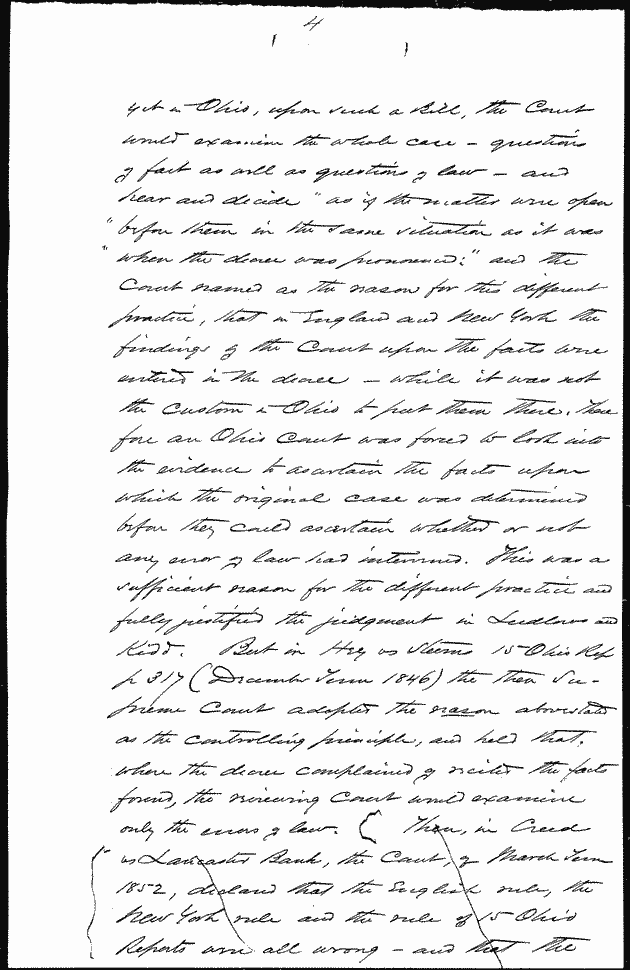 4
yet in Ohio, upon such a Bill, the Court
would examine the whole case – questions
of fact as well as questions of law – and
hear and decide "as if the matter were open
"before them in the same situation as it was
"when the decree was pronounced:" and the
Court named as the reason for this different
practice, that in England and New York the
findings of the Court upon the facts were
entered in the decree – while it was not
the custom in Ohio to put them there. There
fore an Ohio Court was forced to look into
the evidence to ascertain the facts upon
which the original case was determined
before they could ascertain whether or not
any error of law had intervened. This was a
sufficient reason for the different practice and
fully justified the judgement in Ludlow and
Kidd. But in Hey vs Sterns 15 Ohio Rep
p 317 (December Term 1846) the then Su-
preme Court adopted the reason above stated
as the controlling principle, and held that,
where the decree complained of recited the facts
found, the reviewing Court would examine
only the errors of law. { Then, in Creed
vs Lancaster Bank, the Court, of March Term
1852, declared that the English rule, the
New York rule and the rule of 15 Ohio
Reports were all wrong – and that the